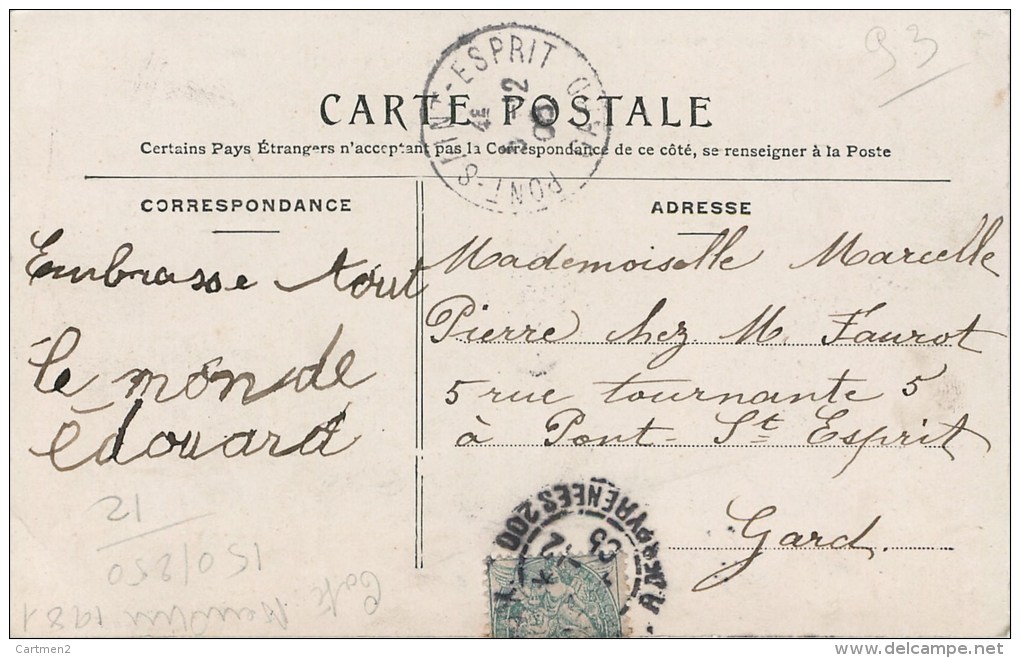 93
PONT-SAINT-ESPRIT GARD
CARTE POSTALE
Certains Pays Étrangers n'acceptant pas la Correspondance de ce côté, se renseigner à la Poste
CORRESPONDANCE
Embrasse tout
le monde
édouard
ADRESSE
Mademoiselle Marcelle
Pierre chez M. Faurot
5 rue tournante 5
à Pont-St Esprit
Gard.
PYRENEES 200
21
150/250
1981
Cartmen2
www.delcampe.net